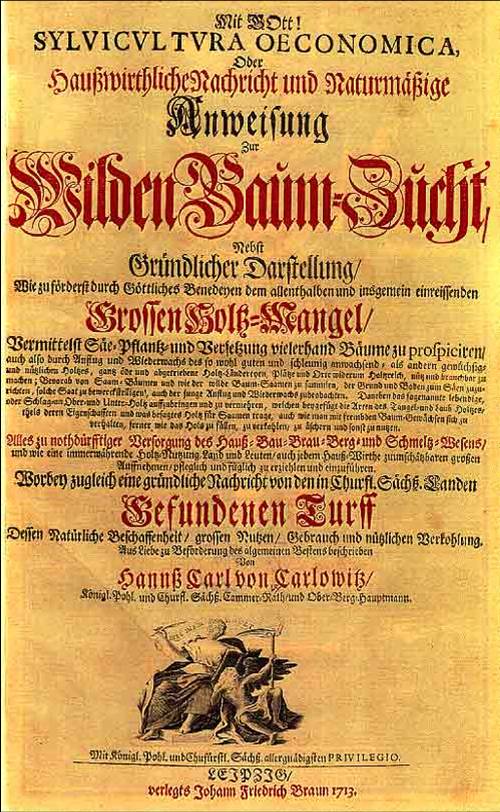 Mit GOtt!
SYLVICVLTVRA OECONOMICA,
Oder
Haußwirthliche Nachricht und Naturmäßige
Anweisung
Zur
Wilden Baum-Zucht/
Nebst
Gründlicher Darstellung/
Wie zu förderst durch Göttliches Benedeyen dem allenthalben und insgemein einreissenden
Grossen Holtz-Mangel/
Vermittelst Säe-Pflantz- und Versetzung vielerhand Bäume zu prospiciren/
auch also durch Anflug und Wiederwachs des so wohl guten und schleunig anwachsend- als andern gewüchsig-
und nützlichen Holtzes, gantz öde und abgetriebene Holtz-Ländereyen, Plätze und Orte wiederum Holtzreich, nütz und brauchbar zu
machen; Bevorab von Saam-Bäumen und wie der wilde Baum-Saamen zu sammlen, der Grund und Boden zum Säen zuzu-
richten, solche Saat zu bewerckstelligen, auch der junge Anflug und Wiederwachs zu beobachten. Daneben das sogenannte lebendige,
oder Schlag an Ober- und Unter-Holtz auffzubringen und zu vermehren, welchen beygefügt die Arten des Tangel- und Laub-Holtzes,
theils deren Eigenschafften und was besagtes Holtz für Saamen trage, auch wie man mit frembden Baum-Gewächsen sich zu
verhalten, ferner wie das Holtz zu fällen, zu verkohlen, zu äschern und sonst zu nutzen.
Alles zu nothdürfftiger Versorgung des Hauß-Bau-Brau-Berg- und Schmeltz-Wesens/
und wie eine immerwährende Holtz-Nutzung Land und Leuten/ auch jedem Hauß-Wirthe zu unschätzbaren großen
Auffnehmen/ pfleglich und füglich zu erziehlen und einzuführen.
Worbey zugleich eine gründliche Nachricht von den in Churfl. Sächß. Landen
Gefundenen Turff
Dessen Natürliche Beschaffenheit/ grossen Nutzen/ Gebrauch und nützlichen Verkohlung.
Aus Liebe zu Beförderung des algemeinen Bestens beschrieben
Von
Hannß Carl von Carlowitz/
Königl. Pohl. und Churfl. Sächß. Cammer-Rath/ und Ober-Berg-Hauptmann.
Mit Königl. Pohl. und Churfürstl. Sächß. allergnädigsten PRIVILEGIO.
LEIPZIG/
verlegts Johann Friedrich Braun 1713.